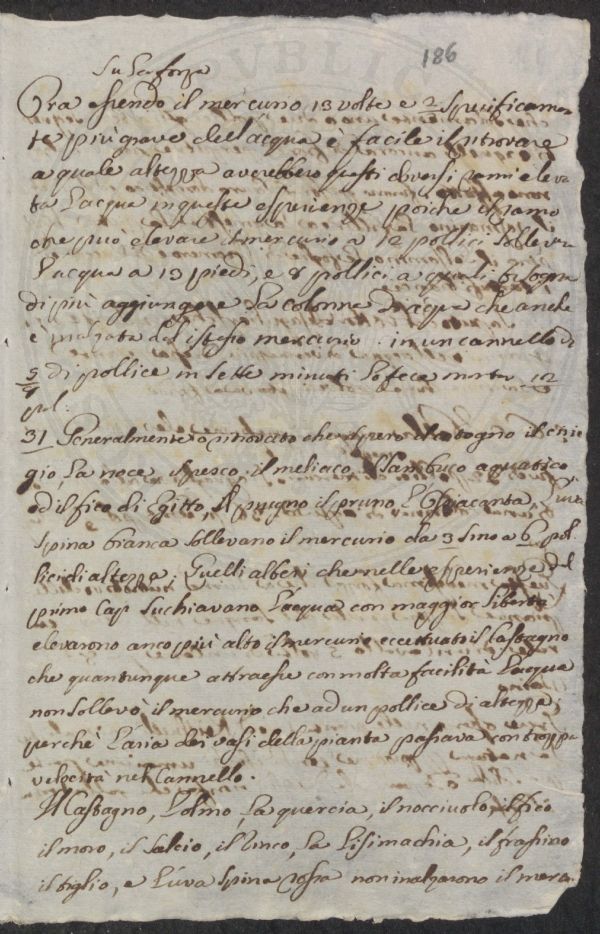 186
Su la forza
Ora essendo il mercurio 13 volte e 2/3 specificamen-
te più grave dell'acqua è facile il ritrovare
a quale altezza averebbero questi diversi rami eleva
ta l'acqua in queste esperienze poiche il ramo
che può elevare il mercurio a 12 pollici sollever
l'acqua a 13 piedi, e 8 pollici a quali bisogna
di più aggiungere la colonna d'acqua che anche
è inalzata dal istesso mercurio. in un cannello di
di pollice in sette minuti lo fece montar 12
pol:
31 Generalmente o provato che il pero il cotogno il cirie
gio, la noce il pesco, il meliaco il sambuco aquatico
ed il fico di Egitto, il prugno il pruno l'Ossiacanta, l'uva
spina bianca sollevano il mercurio da 3 sino a 6 pol
lici di altezza; Quelli alberi che nelle esperienze del
primo Cap suchiavano l'acqua con maggior libertà
elevarono anco più alto il mercurio eccettuato il castagno
che quantunque attraesse con molta facilità l'acqua
non sollevò il mercurio che ad un pollice di altezza,
perchè l'aria dei vasi della pianta passava con troppa
velocità nel Cannello.
Il Castagno, l'olmo la quercia, il nocciuolo, il fico
il moro, il salcio, il Vinco, la Lisimachia, il frassino
il tiglio, e l'uva spina rossa non inalzarono il mercu-